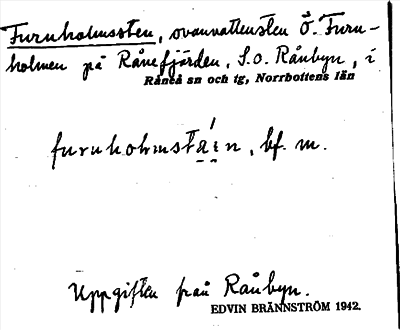 Furuholmssten, ovanvattensten Ö. Furu-
holmen på Rånefjärden, S.o. Rånbyn, i
Råneå sn och tg, Norrbottens län
furuholmsta̤í̤n, bf. m.
Uppgiften från Rånbyn.
EDVIN BRÄNNSTRÖM 1942.